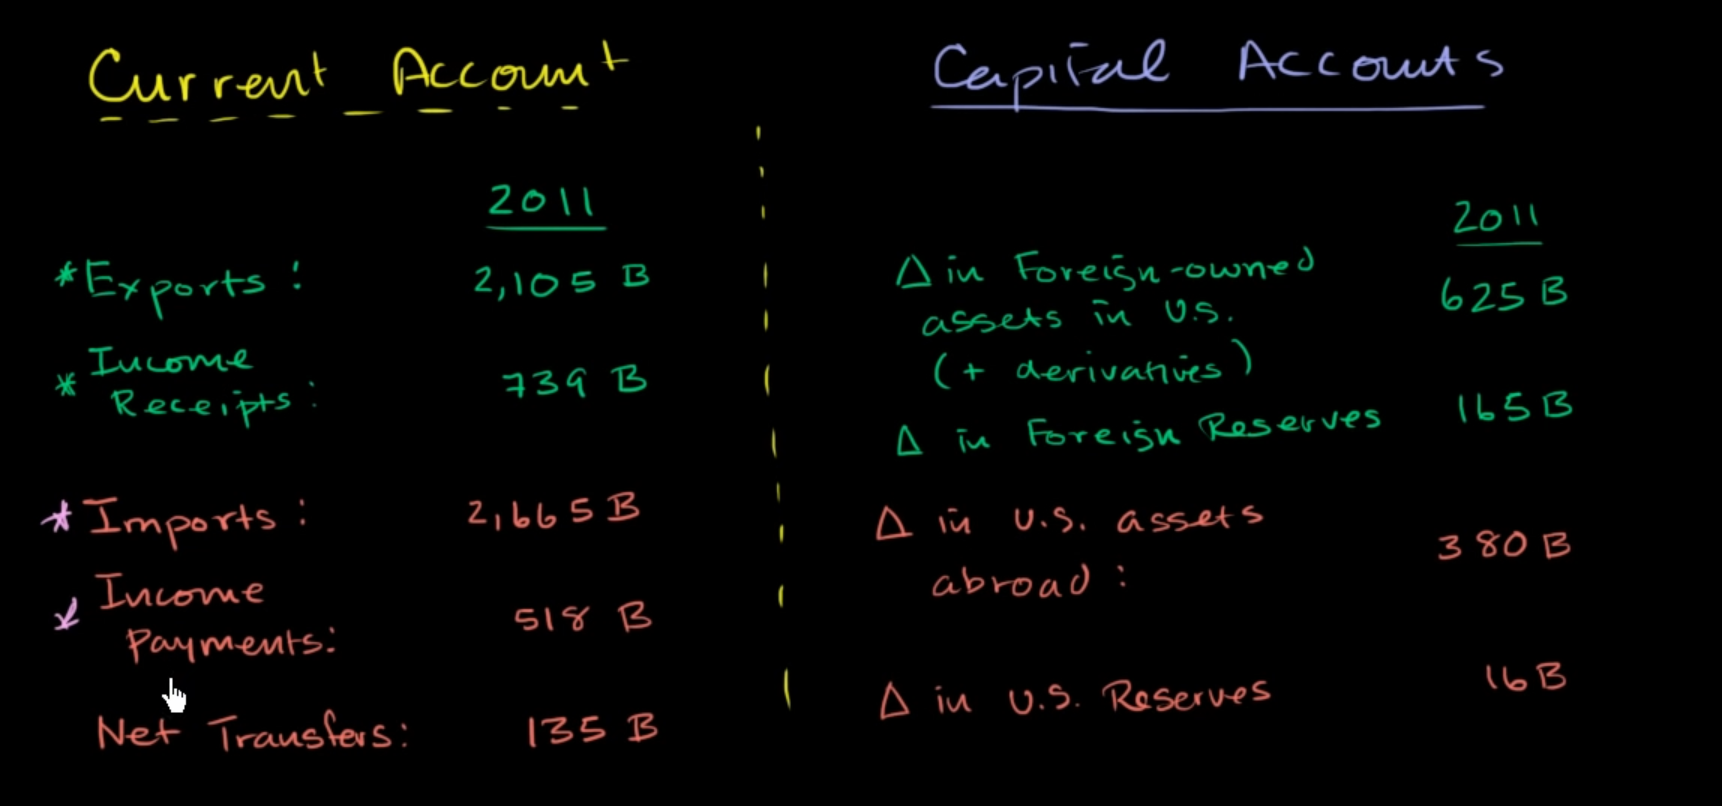 Current Account
2011
* Exports : 2,105 B
* Income
Receipts : 739 B
* Imports : 2,665 B
* Income
Payments : 518 B
Net Transfers : 135 B
Capital Accounts
2011
Δ in Foreign-owned
assets in U.S. 625 B
(+ derivatives)
Δ in Foreign Reserves 165 B
Δ in U.S. assets
abroad : 380 B
Δ in U.S. Reserves 16 B